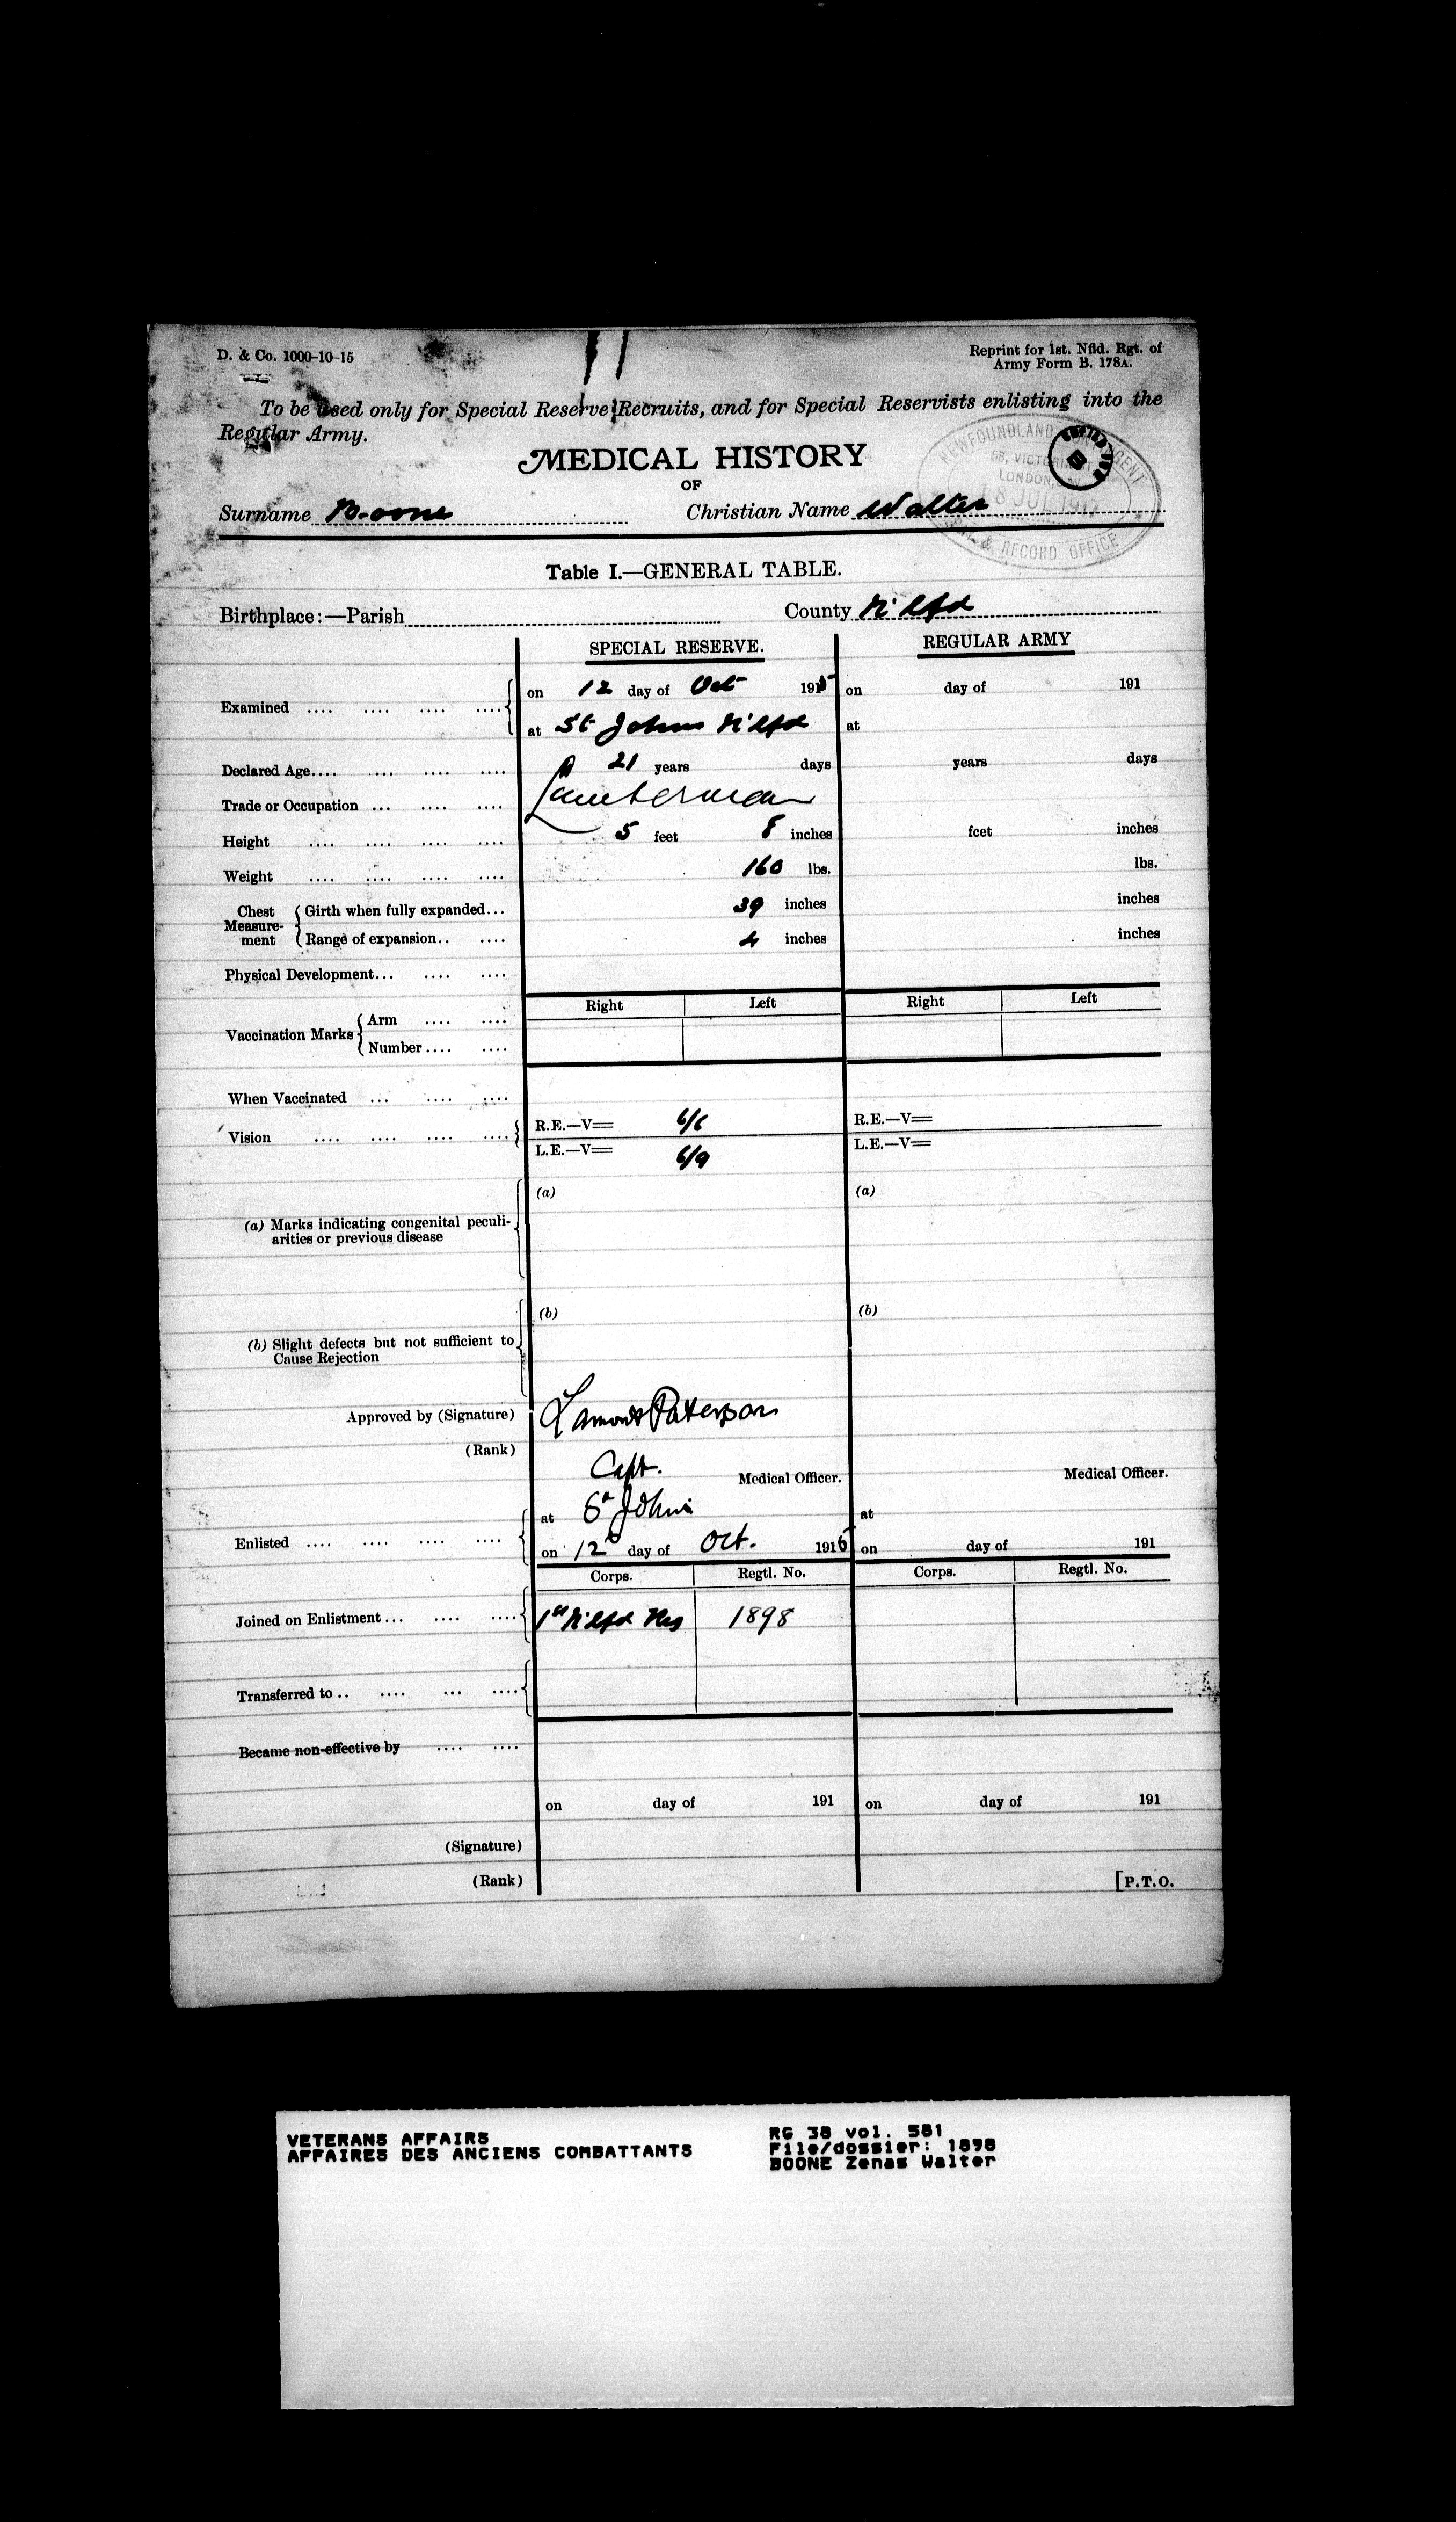 D. & Co. 1000-10-15
Reprint for 1st. Nfld. Rgt. of
Army Form B. 178A.
To be used only for Special Reserve Recruits, and for Special Reservists enlisting into the
Regular Army.
MEDICAL HISTORY
OF
Surname Boone Christian Name Walter
NEWFOUNDLAND
LONDON
18 JUL 1917
& RECORD OFFICE
Table I.—GENERAL TABLE.
Birthplace:—Parish County N'lfd
SPECIAL RESERVE. REGULAR ARMY
Examined .... .... .... .... on 12 day of Oct 1915 on day of 191
at St Johns N'lfd at
Declared Age.... .... .... .... 21 years days years days
Trade or Occupation ... .... .... Lumberman
Height .... .... .... .... 5 feet 8 inches feet inches
Weight .... .... .... .... 160 lbs. lbs.
Chest Measurement Girth when fully expanded... 39 inches inches
Range of expansion.. .... 4 inches inches
Physical Development... .... ....
Right Left Right Left
Vaccination Marks Arm .... ....
Number.... ....
When Vaccinated ... .... ....
Vision .... .... .... .... R.E.—V= 6/6 R.E.—V=
L.E.—V= 6/9 L.E.—V=
(a) (a)
(a) Marks indicating congenital peculi-
arities or previous disease
(b) (b)
(b) Slight defects but not sufficient to
Cause Rejection
Approved by (Signature) Lamont Paterson
(Rank) Capt. Medical Officer. Medical Officer.
at St Johns at
Enlisted .... .... .... .... on 12 day of Oct. 1915 on day of 191
Corps. Regtl. No. Corps. Regtl. No.
Joined on Enlistment... .... .... 1st N'lfd Reg 1898
Transferred to .. .... ... ....
Became non-effective by .... ....
on day of 191 on day of 191
(Signature)
(Rank)
[P.T.O.
VETERANS AFFAIRS
AFFAIRES DES ANCIENS COMBATTANTS
RG 38 vol. 581
File/dossier: 1898
BOONE Zenas Walter